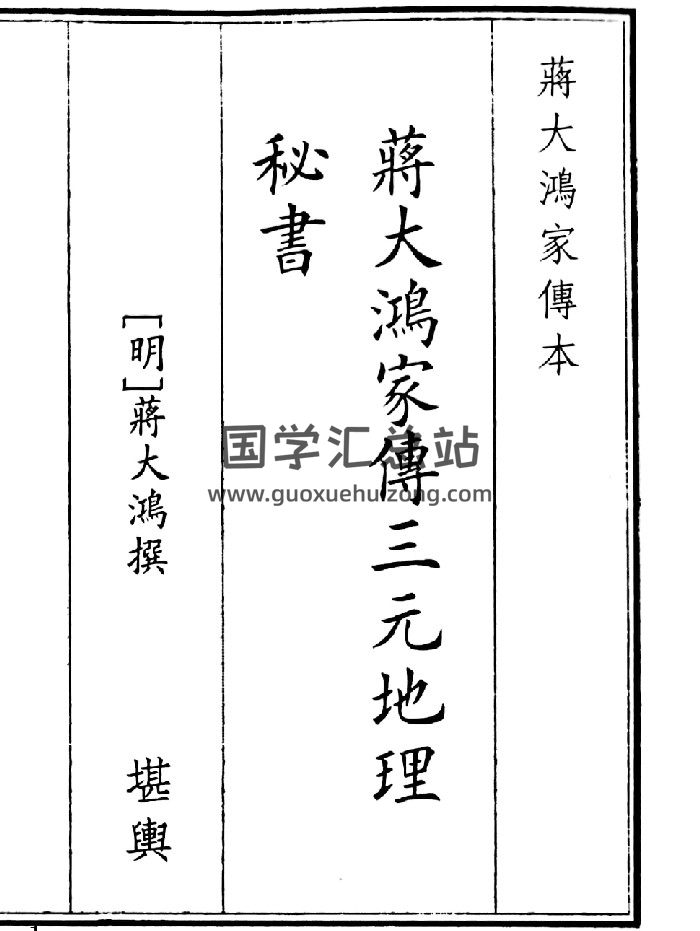 蔣大鴻家傳本
蔣大鴻家傳三元地理
秘書
[明]蔣大鴻撰
堪輿
国学汇总站
www.guoxuehuizong.com
1